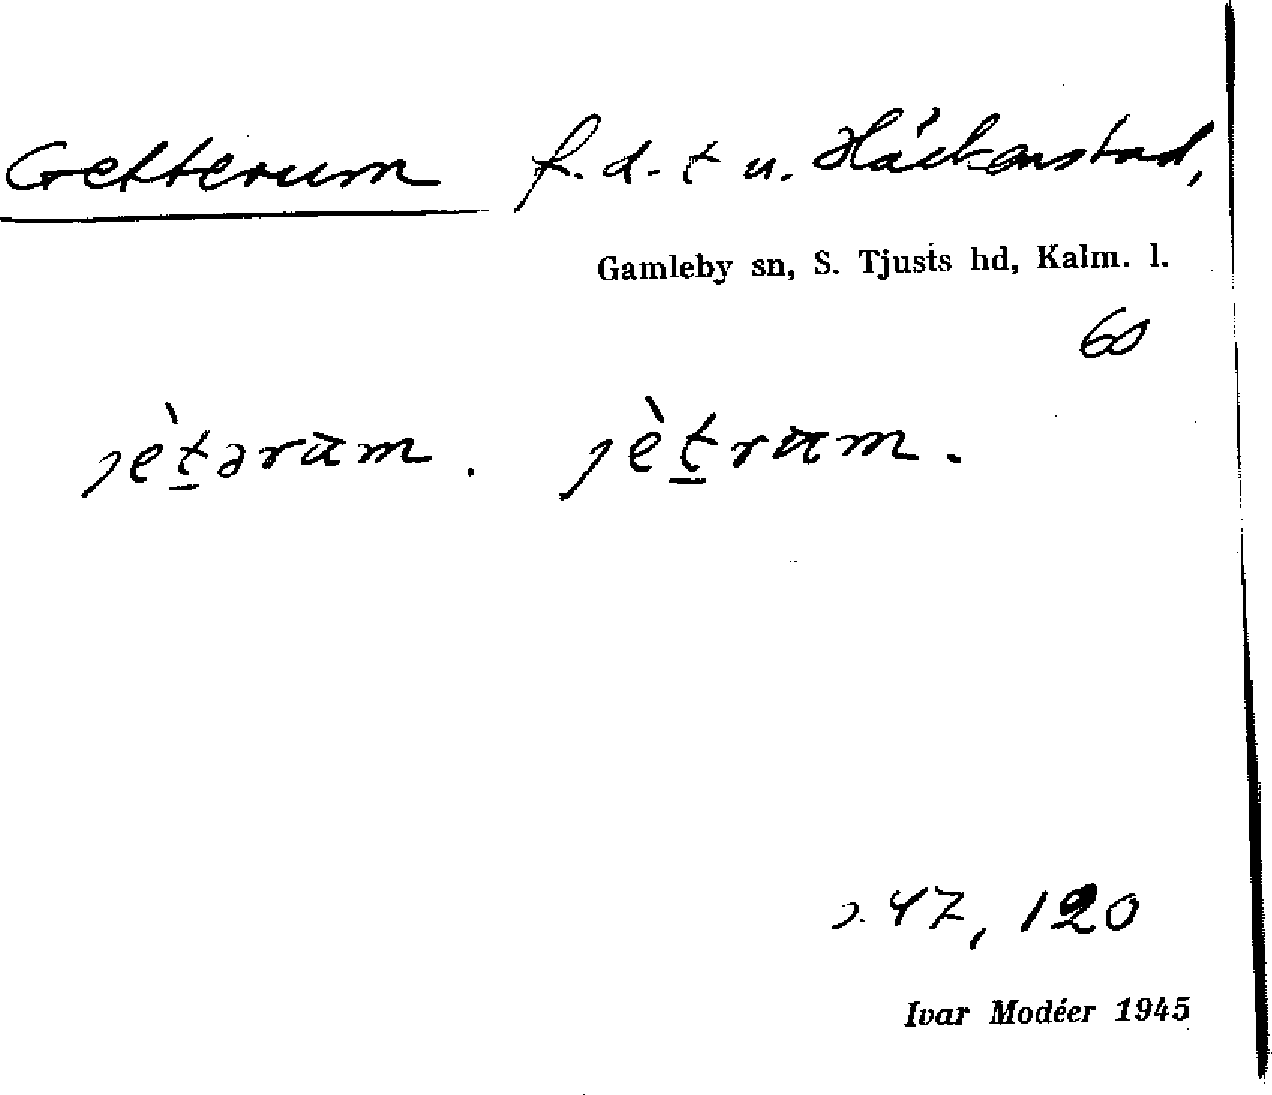 Getterum f. d. t u. Häckenstad,
Gamleby sn, S. Tjusts hd, Kalm. l.
60
jètərām. jètrām.
47, 120
Ivar Modéer 1945